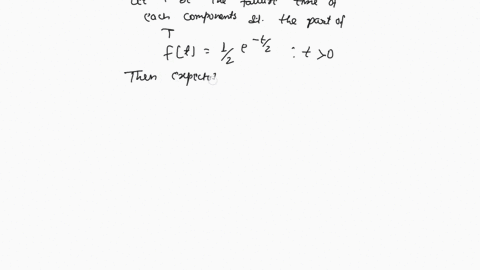 the failure time of
each components &. the part of
T
f(t) = 1/2 e^{-t/2} : t >0
Then expect